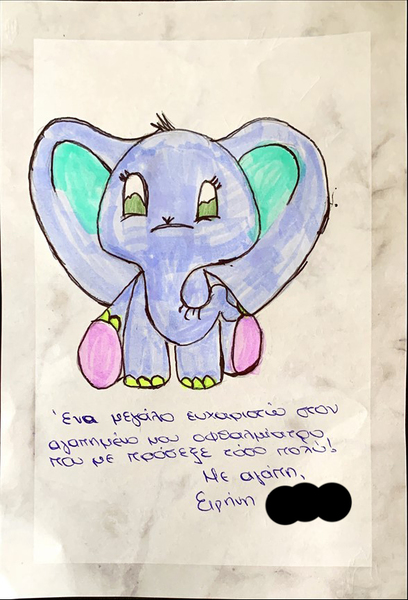 Ένα μεγάλο ευχαριστώ στον
αγαπημένο μου οφθαλμίατρο
που με πρόσεξε τόσο πολύ!
Με αγάπη,
Ειρήνη